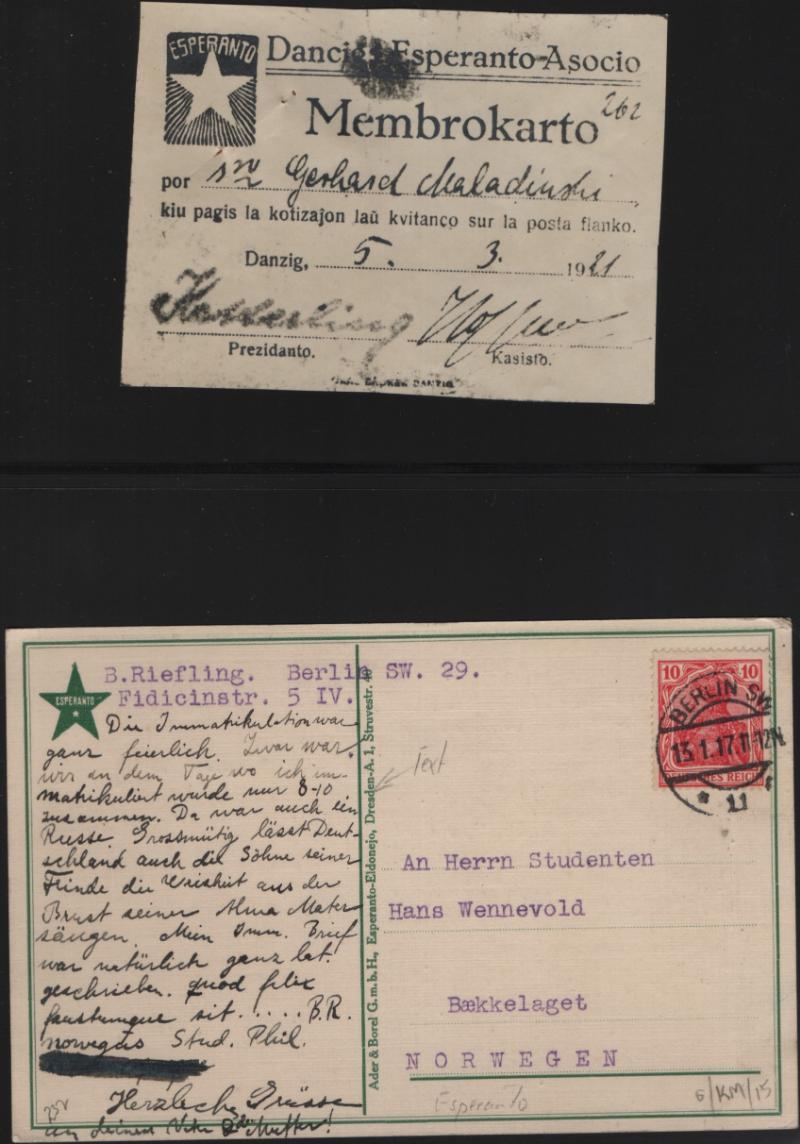 ESPERANTO
Esperanto-Asocio
Membrokarto
262
por sro Gerhard Maladinski
kiu pagis la kotizaĵon laŭ kvitanco sur la posta flanko.
Danzig, 5. 3. 1921
Prezidanto.
Kasisto.
DANZIG
B.Riefling. Berlin SW. 29.
Fidicinstr. 5 IV.
ESPERANTO
Die Immatrikulation war
ganz feierlich. Zwar war.
wir an dem Tage wo ich im-
matrikuliert wurde nur 8-10
zusammen. Da war auch ein
Russe. Grossmütig lässt Deut-
schland auch die Söhne seiner
Feinde die Weisheit aus der
Brust seiner Alma Mater
säugen. Mein Imm. Brief
war natürlich ganz lat.
geschrieben. quod felix
faustumque sit..... B.R.
norvegus Stud. Phil.
Herzliche Grüsse
an deinen Vater & der Mutter!
Ader & Borel G.m.b.H., Esperanto-Eldonejo, Dresden-A. 1, Struvestr. 40
Text
10 10
DEUTSCHES REICH
BERLIN SW
13.1.17.11-12N
* 11
An Herrn Studenten
Hans Wennevold
Bækkelaget
NORWEGEN
Esperanto
6/KM/15